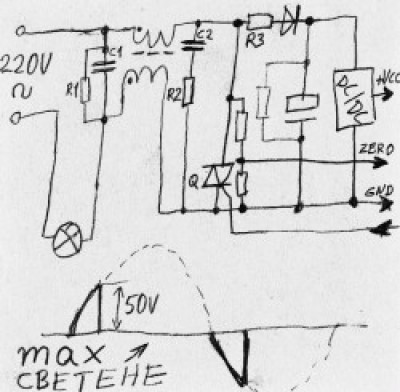 C1
C2
R3
220V
~
R1
R2
DC/DC
+VCC
ZERO
Q
GND
50V
max
СВЕТЕНЕ